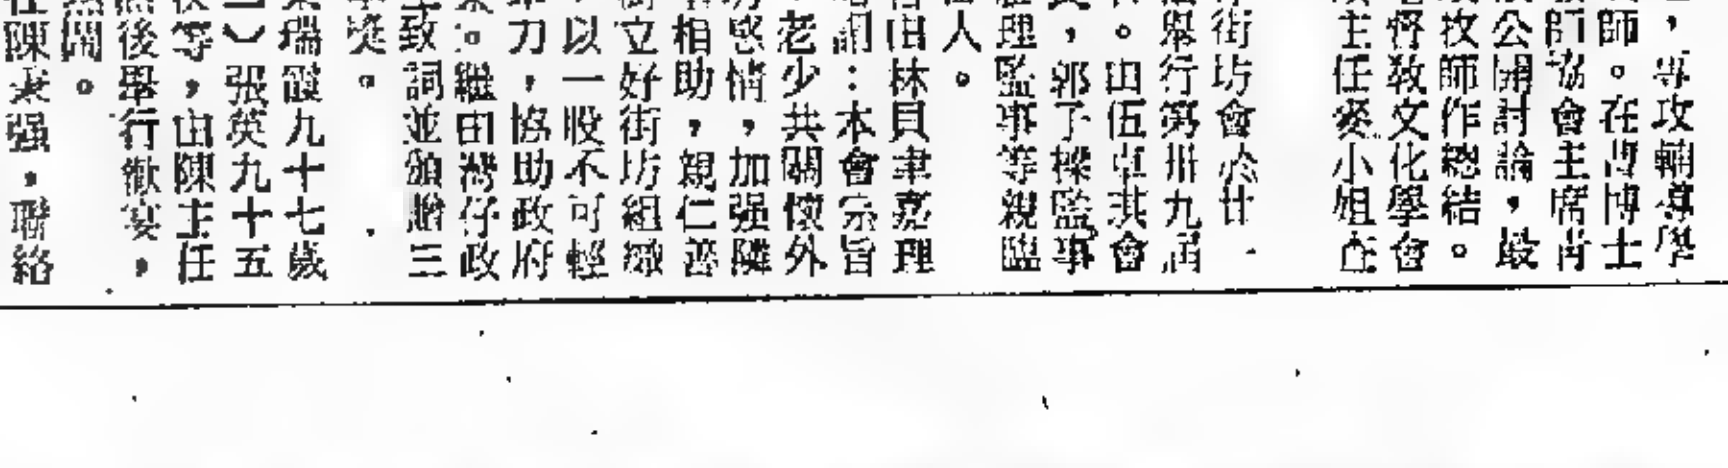 ，專攻輔導學
師。在曹博士
師協會主席肯
公開討論，最
牧師作總結。
督教文化學會
主任麥小姐在
街坊會於廿一
舉行第卅九屆
。由伍卓其會
，郭子樑監事
理監事等親臨
人。
由林貝聿嘉理
詞：本會宗旨
老少共關懷外
感情，加强隣
相助，親仁善
立好街坊組織
以一股不可輕
力，協助政府
。繼由灣仔政
致詞並頒贈三
獎。
瑞霞九十七歲
）張英九十五
等，由陳主任
後舉行歡宴，
鬧。
陳秉强，聯絡